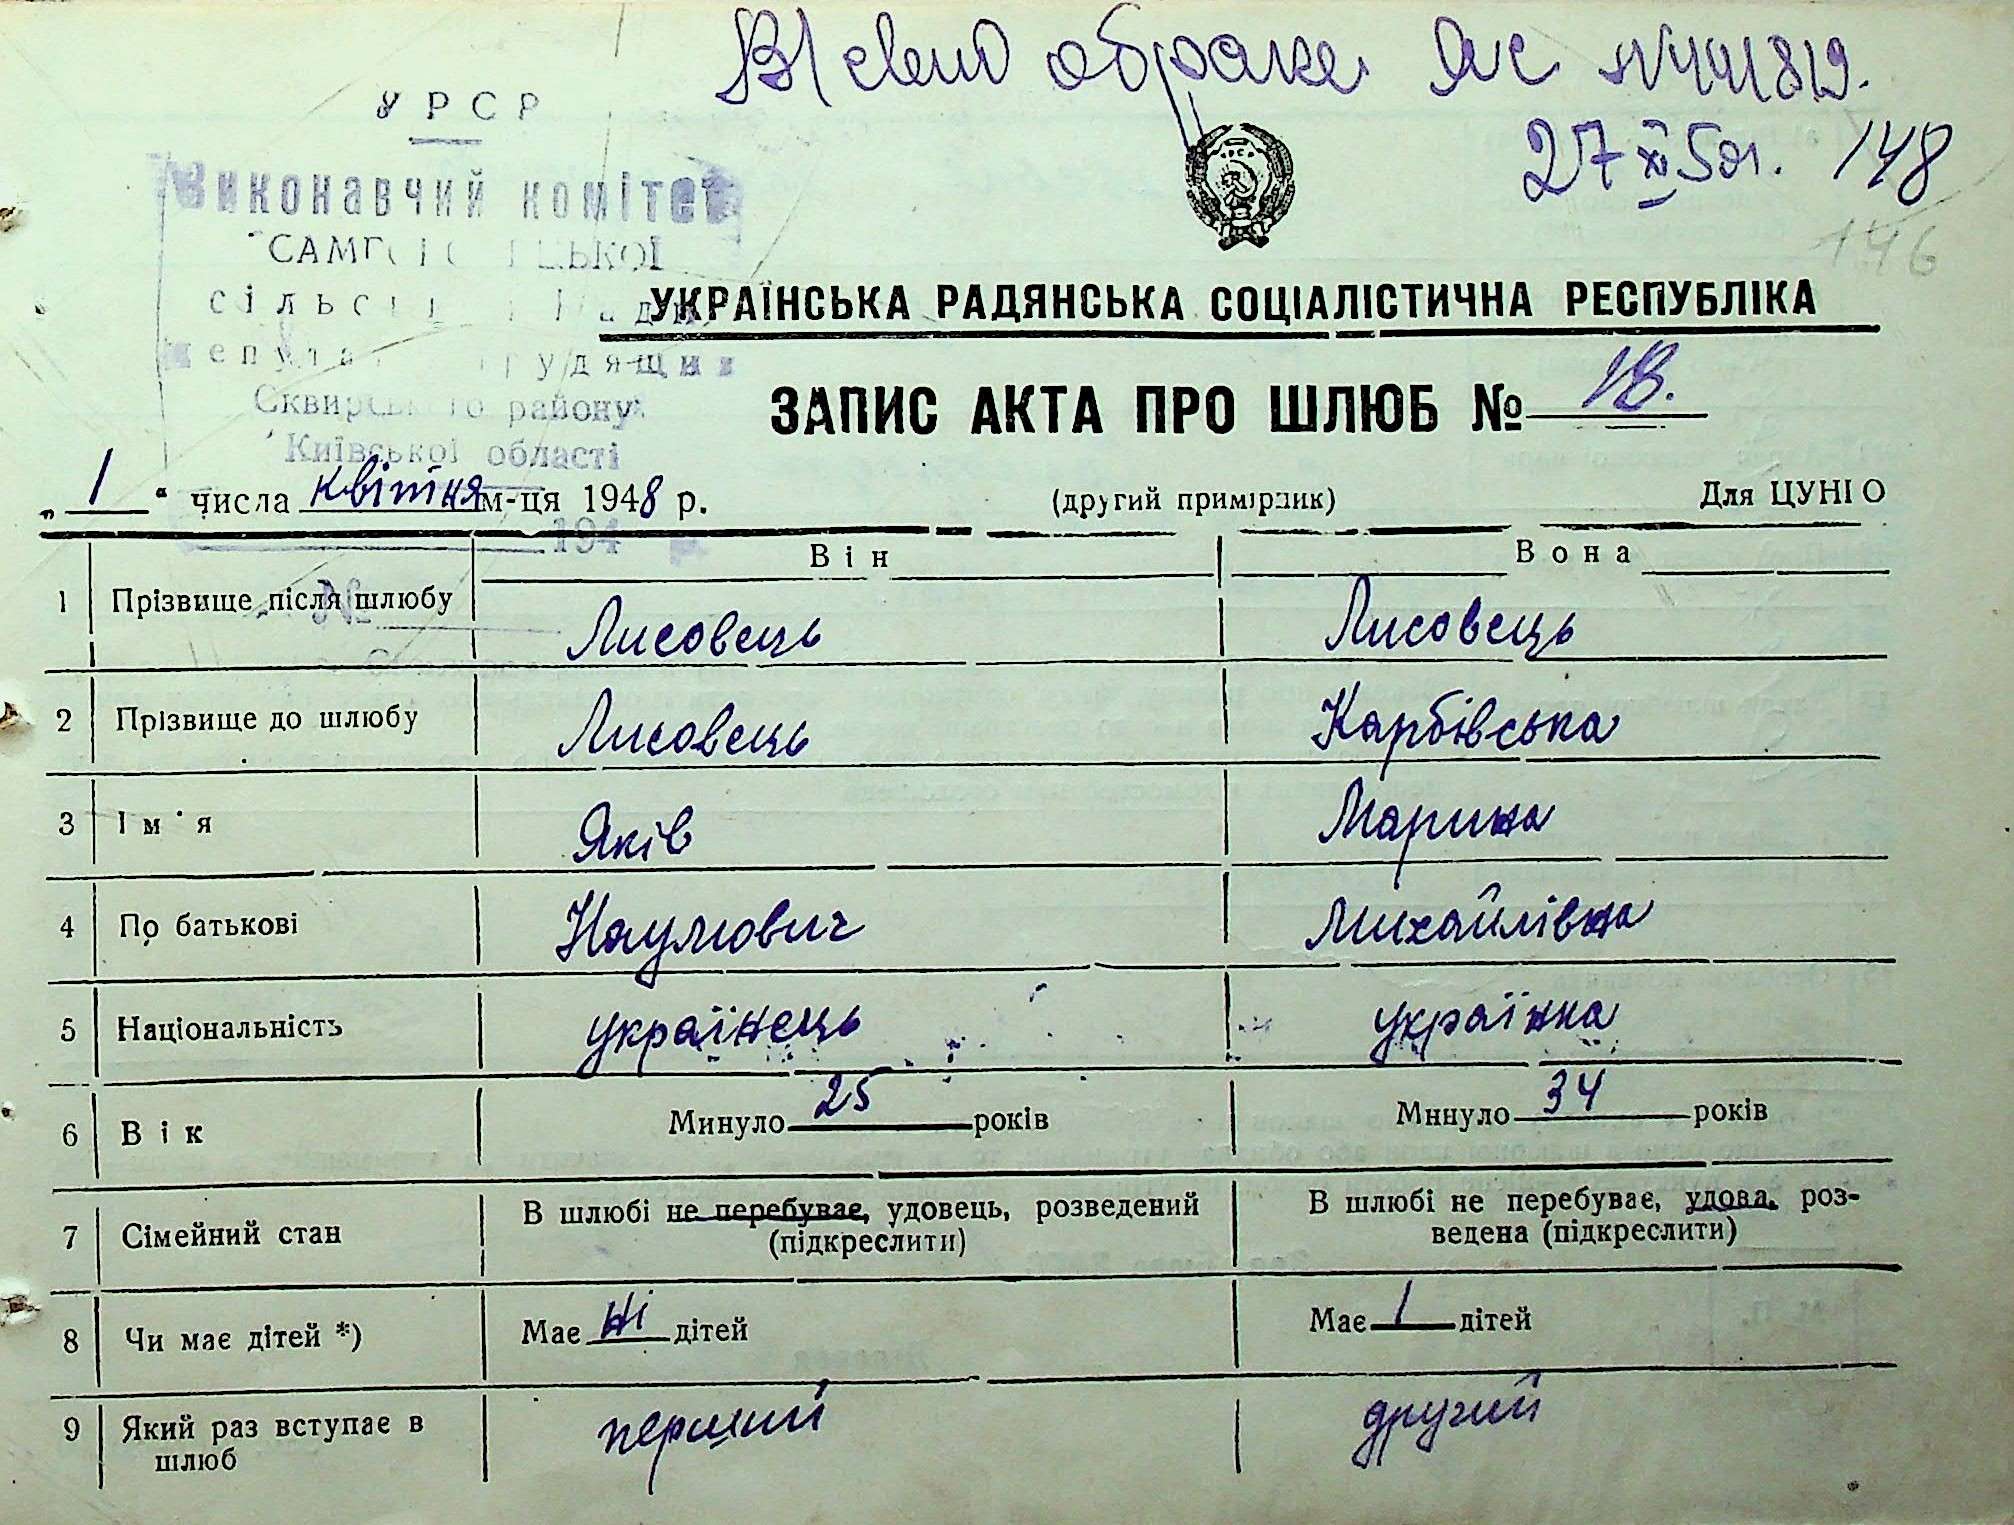 В/ свид о браке ЯС № 441819.
27 XI 50г. 148
146
УРСР
Виконавчий комітет
Сквирського району
Київської області
194
№
УКРАЇНСЬКА РАДЯНСЬКА СОЦІАЛІСТИЧНА РЕСПУБЛІКА
ЗАПИС АКТА ПРО ШЛЮБ № 18.
„ 1 “ числа квітня м-ця 1948 р. (другий примірник) Для ЦУНІО
Він Вона
1 Прізвище після шлюбу Лисовець Лисовець
2 Прізвище до шлюбу Лисовець Карбівська
3 Ім'я Яків Марина
4 По батькові Наумович Михайлівна
5 Національність українець українка
6 Вік Минуло 25 років Минуло 34 років
7 Сімейний стан В шлюбі не перебуває, удовець, розведений (підкреслити) В шлюбі не перебуває, удова, роз-
ведена (підкреслити)
8 Чи має дітей *) Має ні дітей Має 1 дітей
9 Який раз вступає в шлюб перший другий